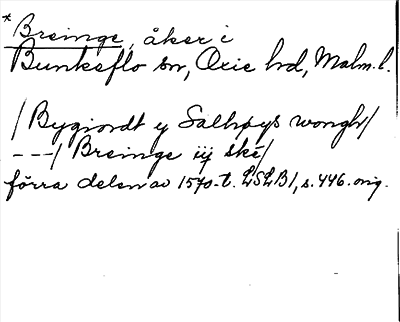 *Breinge, åker i
Bunkeflo sn, Oxie hd, Malm.l.
/Bygiordt y Salhøys wongh/
---/Breinge iij ské/
förra delen av 1570-t. LSLB1, s.446.orig.